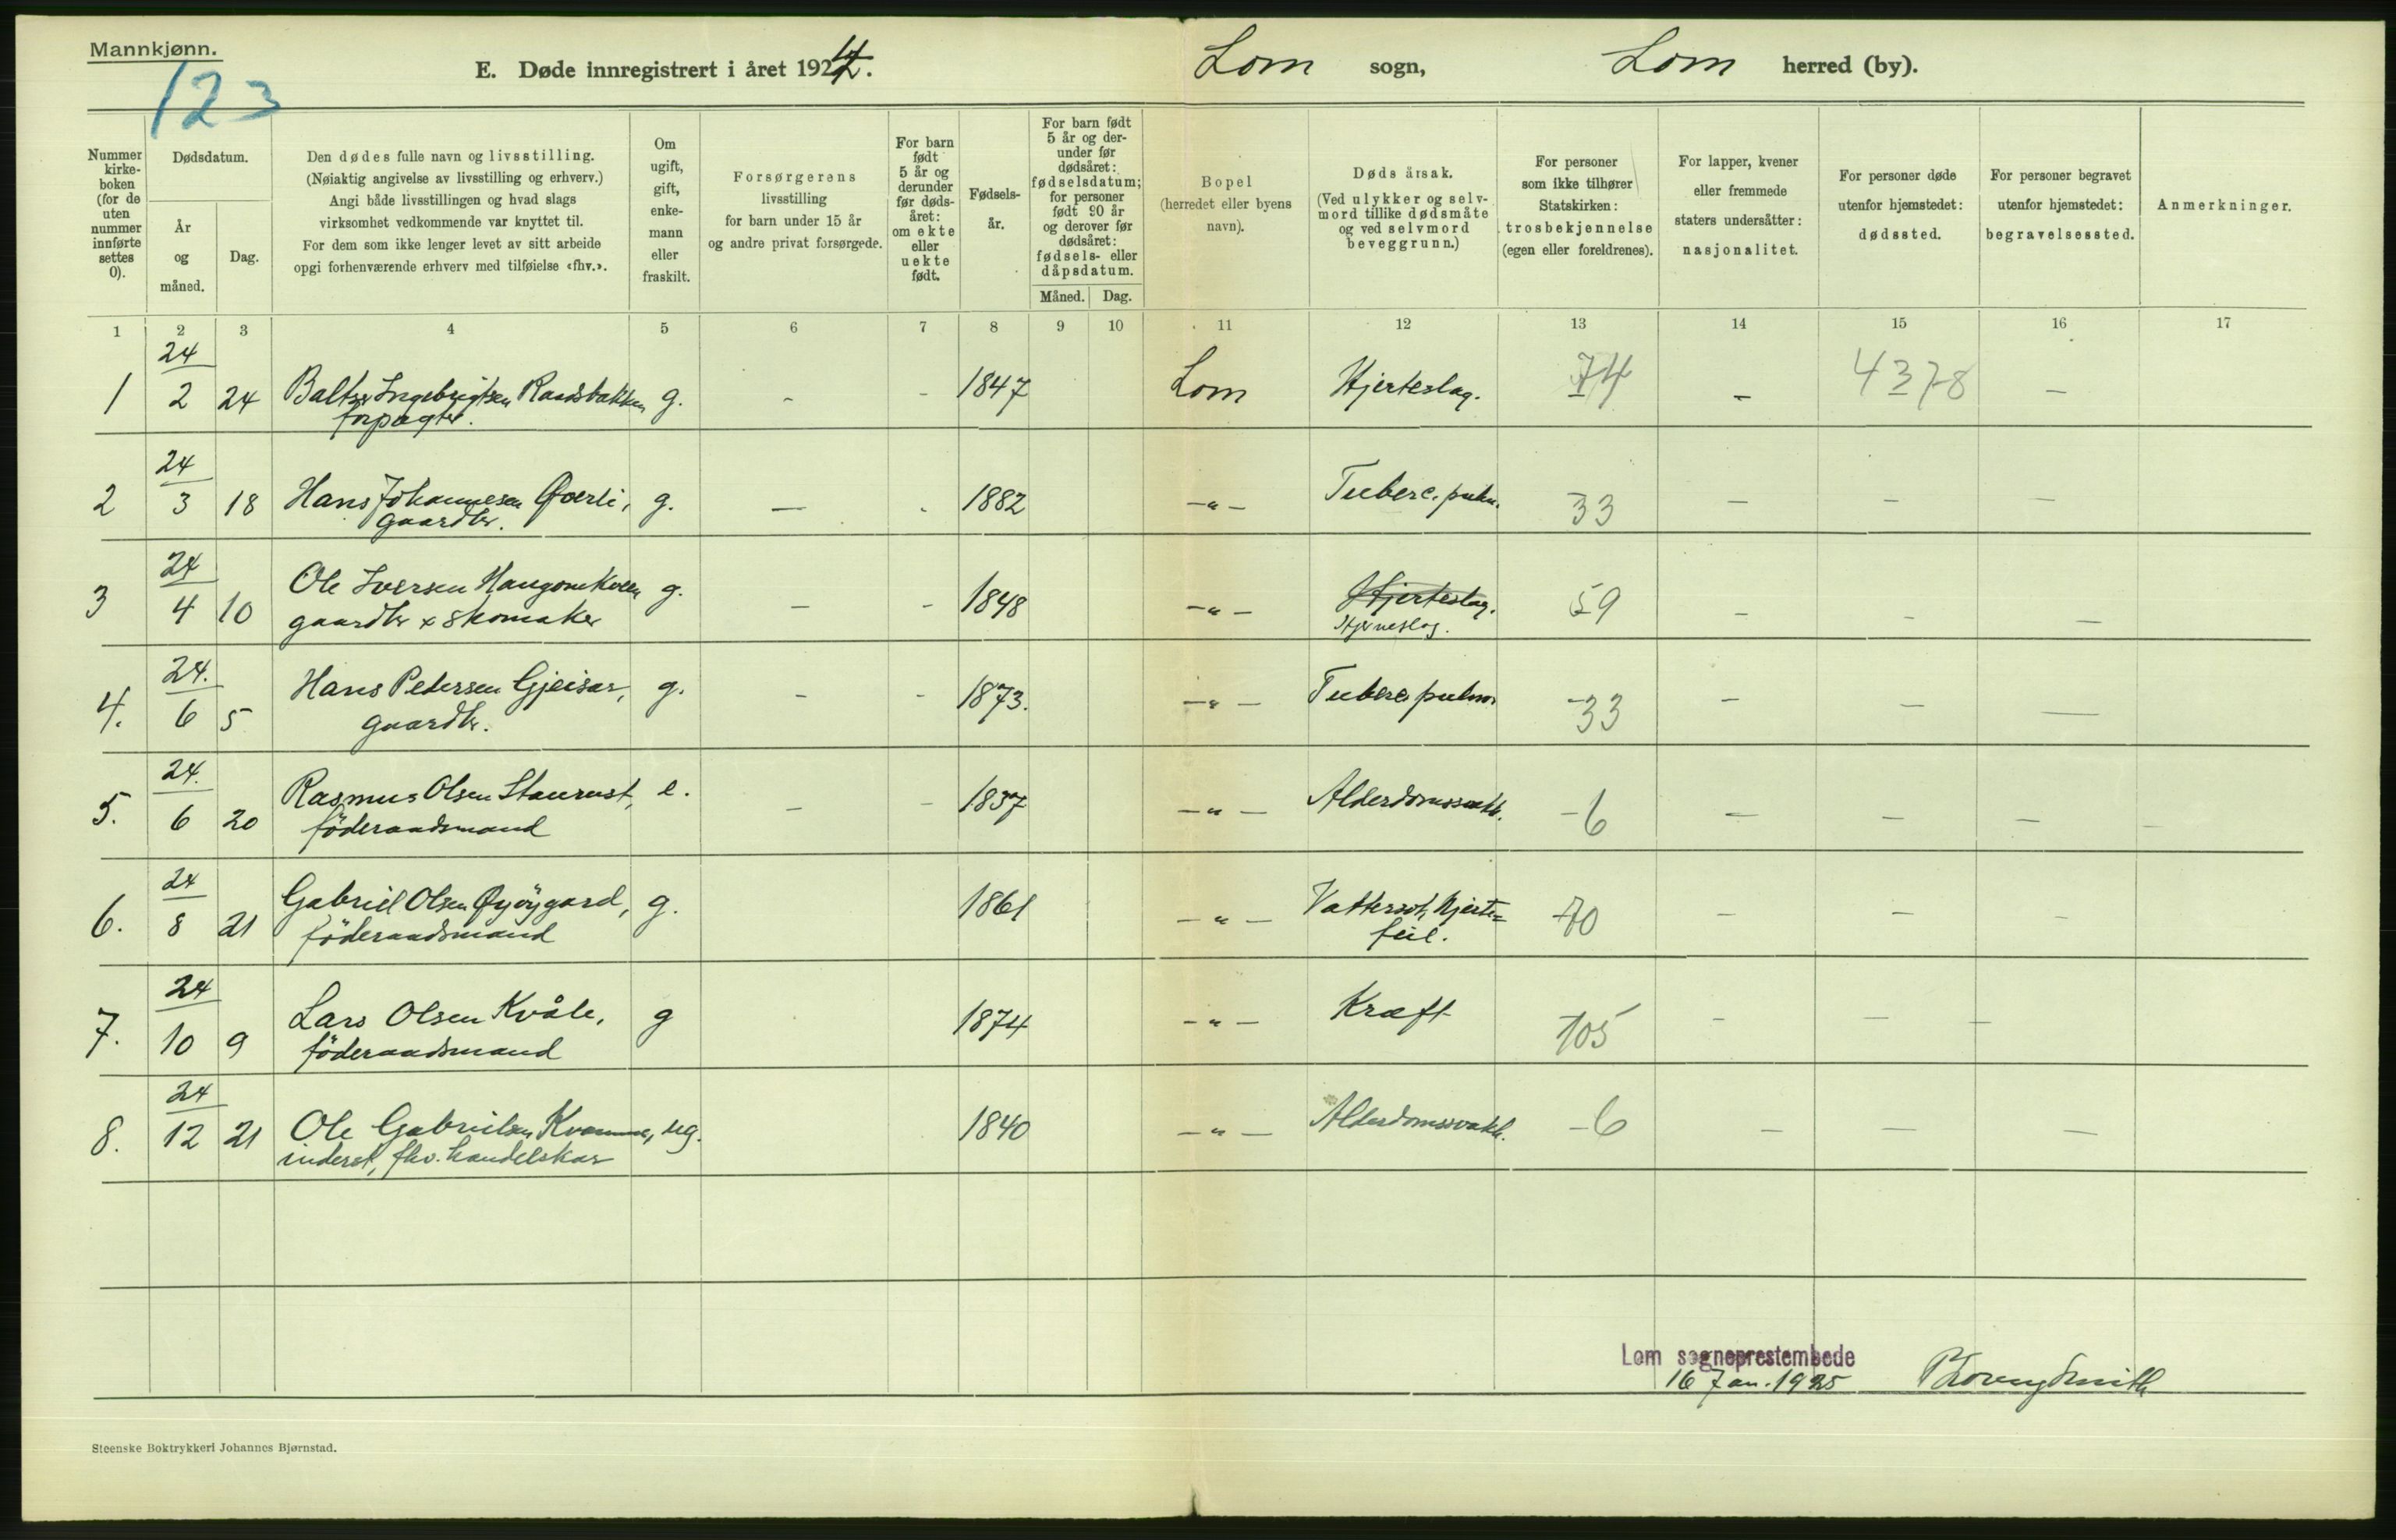 Mannkjønn.
123
E. Døde innregistrert i året 1924.
Lom sogn, Lom herred (by).
Nummer kirke-boken (for de uten nummer innførte settes 0).
Dødsdatum.
År og måned.
Dag.
Den dødes fulle navn og livsstilling.
(Nøiaktig angivelse av livsstilling og erhverv.)
Angi både livsstillingen og hvad slags
virksomhet vedkommende var knyttet til.
For dem som ikke lenger levet av sitt arbeide
opgi forhenværende erhverv med tilføielse «fhv.».
Om ugift, gift, enke-mann eller fraskilt.
Forsørgerens
livsstilling
for barn under 15 år
og andre privat forsørgede.
For barn født 5 år og derunder før døds-året: om ekte eller uekte født.
Fødsels-år.
For barn født 5 år og der-under før dødsåret: fødselsdatum; for personer født 90 år og derover før dødsåret: fødsels- eller dåpsdatum.
Måned. Dag.
Bopel
(herredet eller byens
navn).
Døds årsak.
(Ved ulykker og selv-
mord tillike dødsmåte
og ved selvmord
beveggrunn.)
For personer
som ikke tilhører
Statskirken:
trosbekjennelse
(egen eller foreldrenes).
For lapper, kvener
eller fremmede
staters undersåtter:
nasjonalitet.
For personer døde
utenfor hjemstedet:
dødssted.
For personer begravet
utenfor hjemstedet:
begravelsessted.
Anmerkninger.
1 2 3 4 5 6 7 8 9 10 11 12 13 14 15 16 17
24
1 2 24 Baltzer Ingebrigtsen Raadsbakken g. - - 1847 Lom Hjerteslag. 74 - 4378 -
forpagter.
24
2 3 18 Hans Johannesen Øverli, g. - - 1882 -"- Tuberc. pulm. 33 - - -
gaardbr.
24
3 4 10 Ole Iversen g. - - 1848 -"- Hjerteslag. 59 - - -
gaardbr x skomaker Hjerneslag.
24.
4. 6 5 Hans Petersen Gjeisar, g. - - 1873. -"- Tuberc. pulm. 33 - - -
gaardbr.
24.
5. 6 20 Rasmus Olsen Staurust, e. - - 1837 -"- Alderdomssvakh. 6 - - - -
föderaadsmand
24
6. 8 21 Gabriel Olsen Øyöygard, g. 1861 -"- Vattersot, Hjerte= 70 - - -
föderaadsmand feil.
24
7. 10 9 Lars Olsen Kvåle, g 1874 -"- Kræft 105 - - -
föderaadsmand
24
8. 12 21 Ole Gabrielsen Kvamme, ug. 1840 -"- Alderdomssvakh. 6 - - -
inderst, fhv. handelskar
Lom sogneprestembede
16 Jan. 1925
Steenske Boktrykkeri Johannes Bjørnstad.